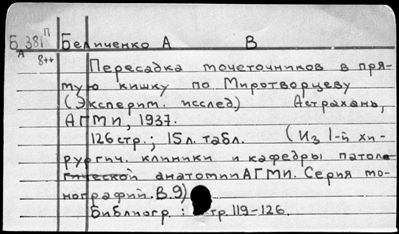 Б 381 П Беличенко А В
А 8++
Пересадка мочеточников в пря-
мую кишку по Миротворцеву
(Эксперим. исслед.) Астрахань,
АГМИ, 1937.
126 стр.; 15 л. табл. (Из 1-й хи-
рургич. клиники и кафедры патоло
гической анатомии АГМИ. Серия мо-
нографий. В. 9)
Библиогр: стр. 119-126.